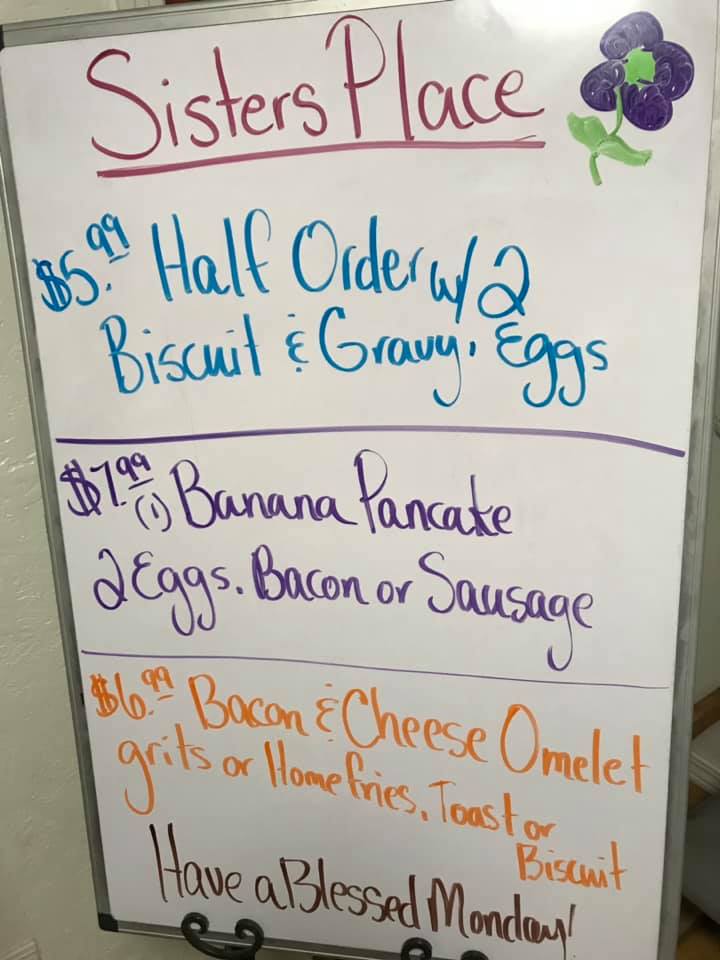 Sisters Place
$5.99 Half Order w/ 2
Biscuit & Gravy. Eggs
$7.99 (1) Banana Pancake
2 Eggs. Bacon or Sausage
$6.99 Bacon & Cheese Omelet
grits or Home fries. Toast or
Biscuit
Have a Blessed Monday!